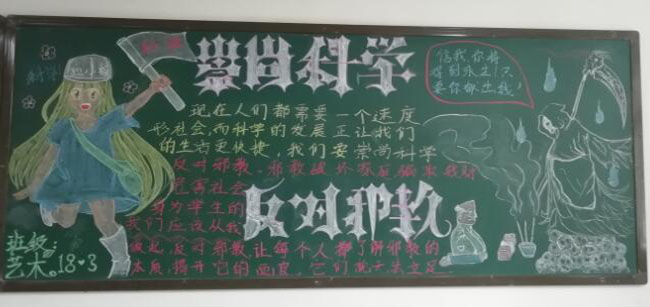 崇尚科学
信我你将
得到永生！只
要你献上钱！
现在人们都需要一个速度
形社会而科学的发展正让我们
的生活更快捷，我们要崇尚科学
反对邪教，邪教破坏家庭骗取钱财
危害社会
身为学生的
我们应该从我
做起，反对邪教，让每个人都了解邪教的
本质，揭开它的面具，它们就无法立足。
反对邪教
班级：
艺术。18·3